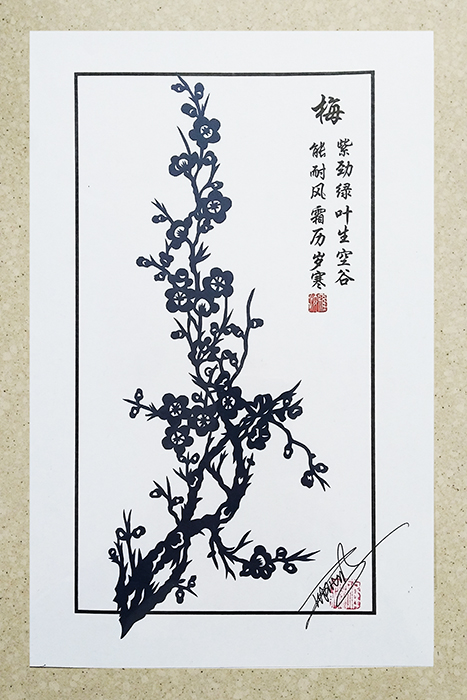 梅
紫劲绿叶生空谷
能耐风霜历岁寒